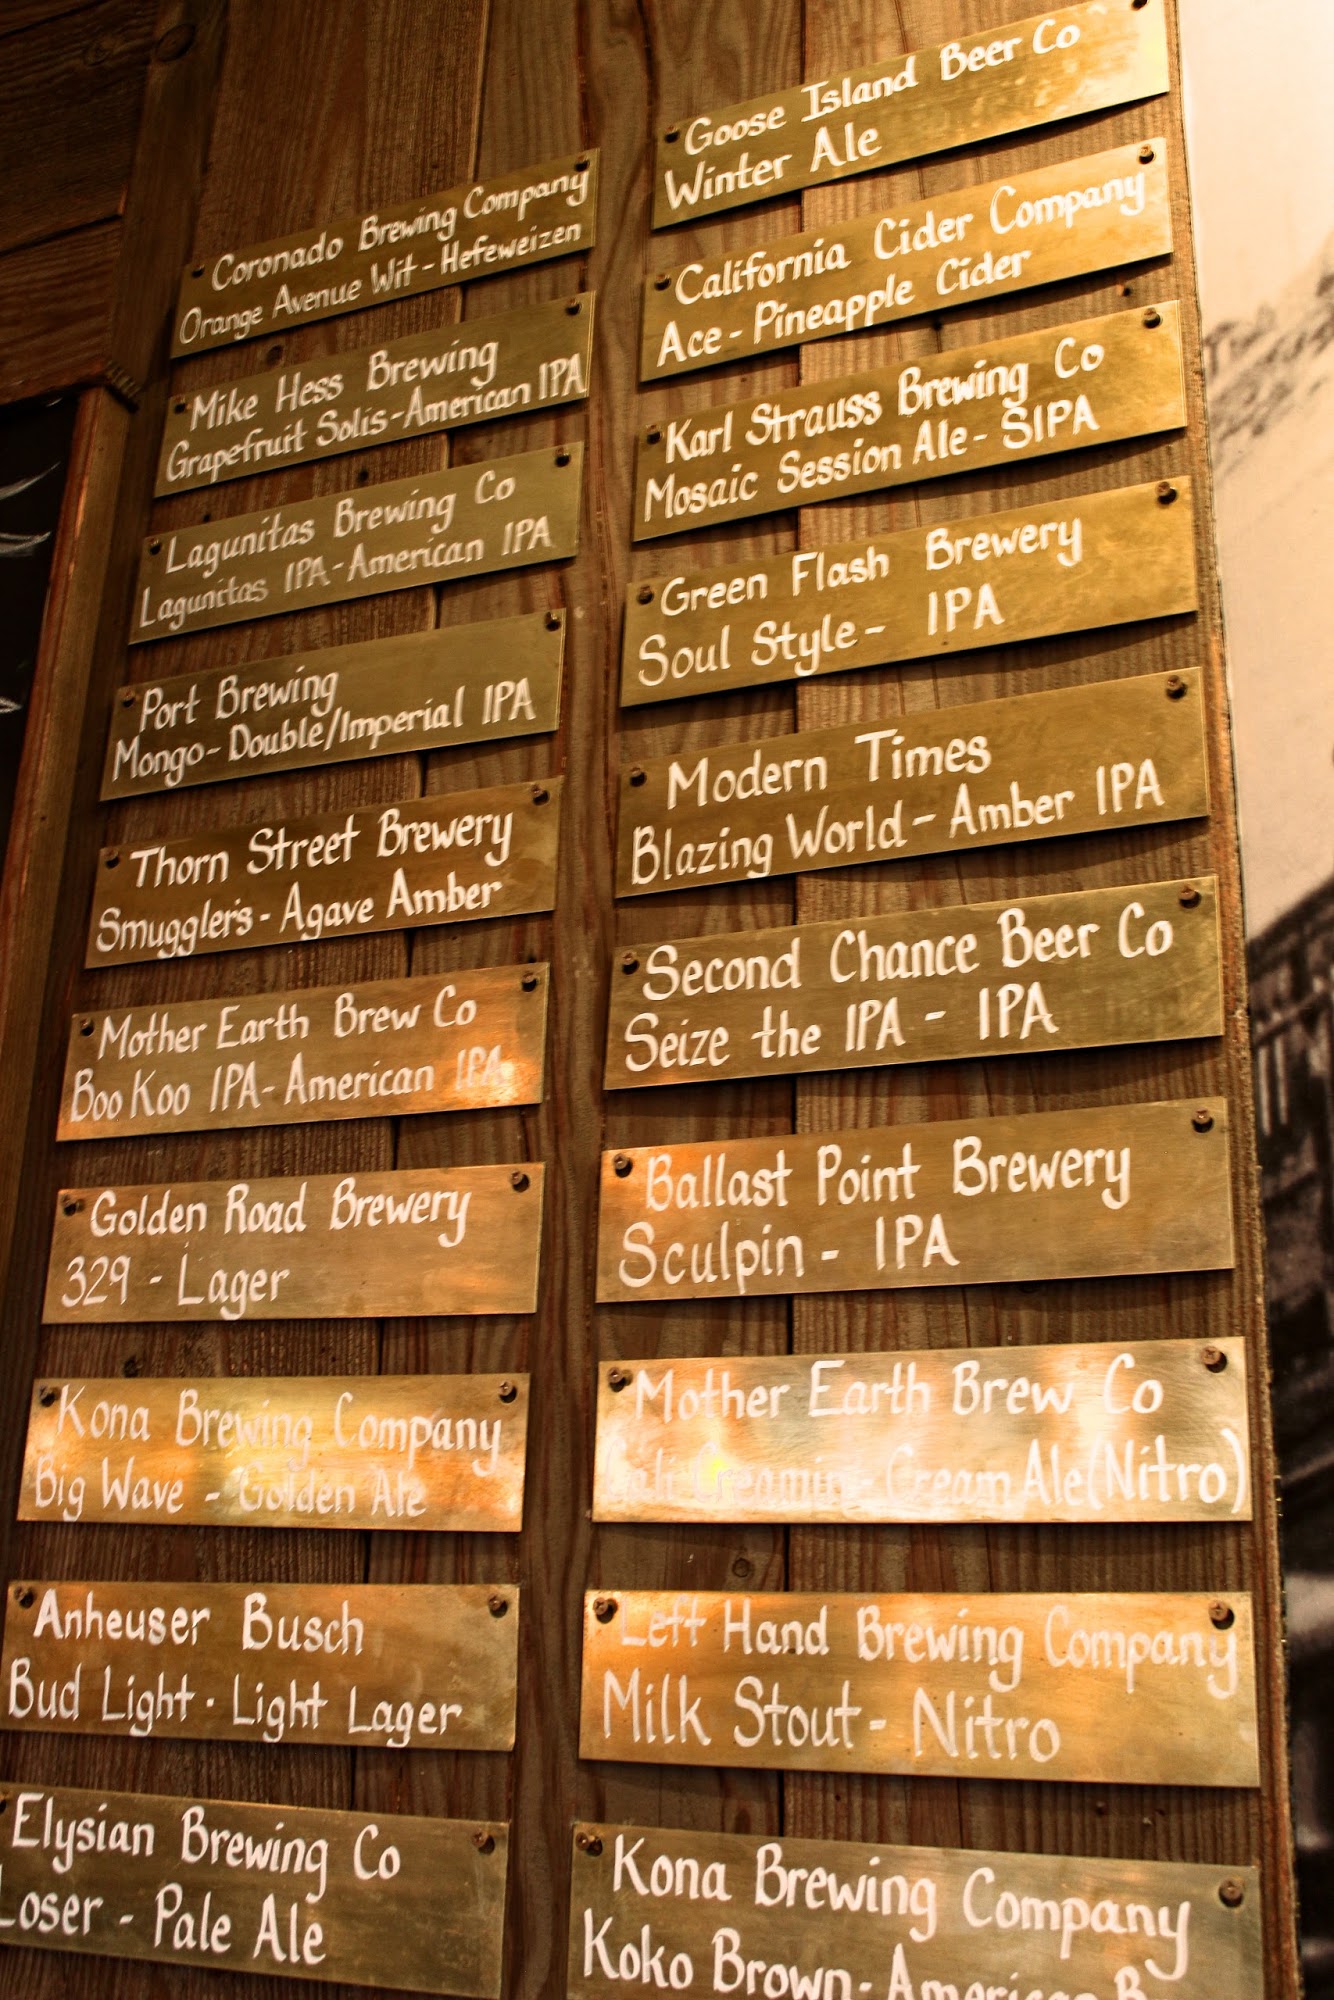 Coronado Brewing Company
Orange Avenue Wit - Hefeweizen
Mike Hess Brewing
Grapefruit Solis - American IPA
Lagunitas Brewing Co
Lagunitas IPA - American IPA
Port Brewing
Mongo - Double/Imperial IPA
Thorn Street Brewery
Smuggler's - Agave Amber
Mother Earth Brew Co
Boo Koo IPA - American IPA
Golden Road Brewery
329 - Lager
Kona Brewing Company
Big Wave - Golden Ale
Anheuser Busch
Bud Light · Light Lager
Elysian Brewing Co
Loser - Pale Ale
Goose Island Beer Co
Winter Ale
California Cider Company
Ace - Pineapple Cider
Karl Strauss Brewing Co
Mosaic Session Ale - SIPA
Green Flash Brewery
Soul Style - IPA
Modern Times
Blazing World - Amber IPA
Second Chance Beer Co
Seize the IPA - IPA
Ballast Point Brewery
Sculpin - IPA
Mother Earth Brew Co
Cali Creamin - Cream Ale (Nitro)
Left Hand Brewing Company
Milk Stout - Nitro
Kona Brewing Company
Koko Brown - American B